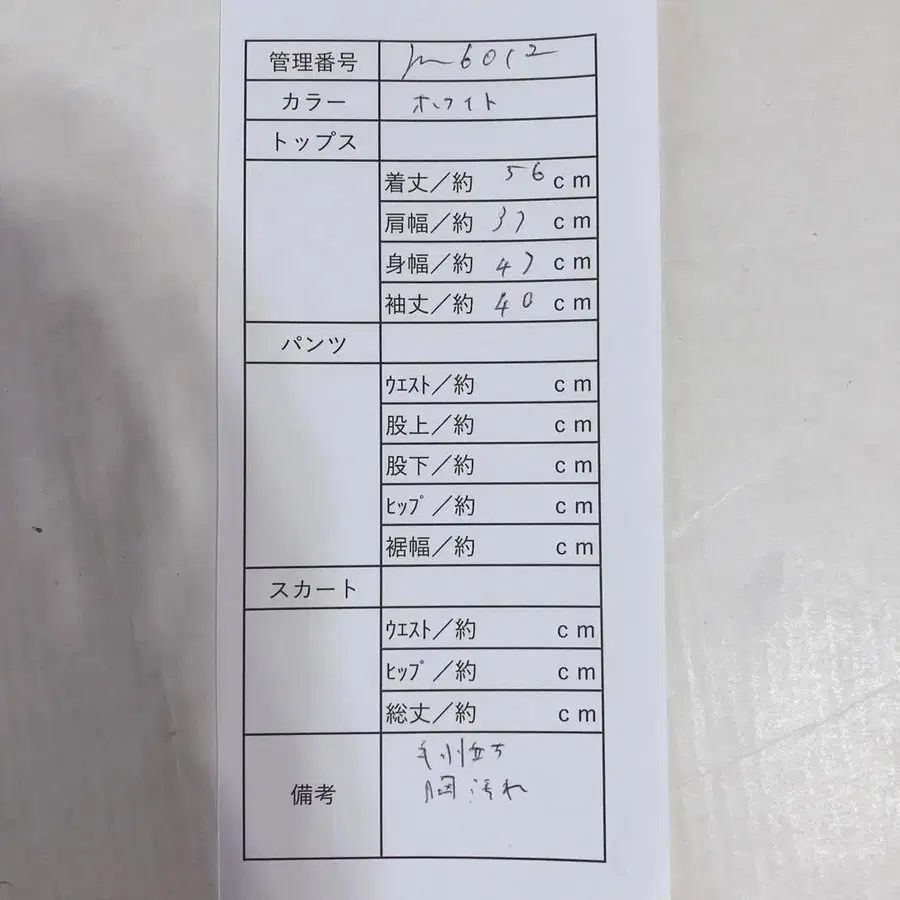 管理番号 m6012
カラー ホワイト
トップス
着丈／約 56 cm
肩幅／約 37 cm
身幅／約 47 cm
袖丈／約 40 cm
パンツ
ｳｴｽﾄ／約 cm
股上／約 cm
股下／約 cm
ﾋｯﾌﾟ／約 cm
裾幅／約 cm
スカート
ｳｴｽﾄ／約 cm
ﾋｯﾌﾟ／約 cm
総丈／約 cm
毛羽立ち
備考 胸汚れ